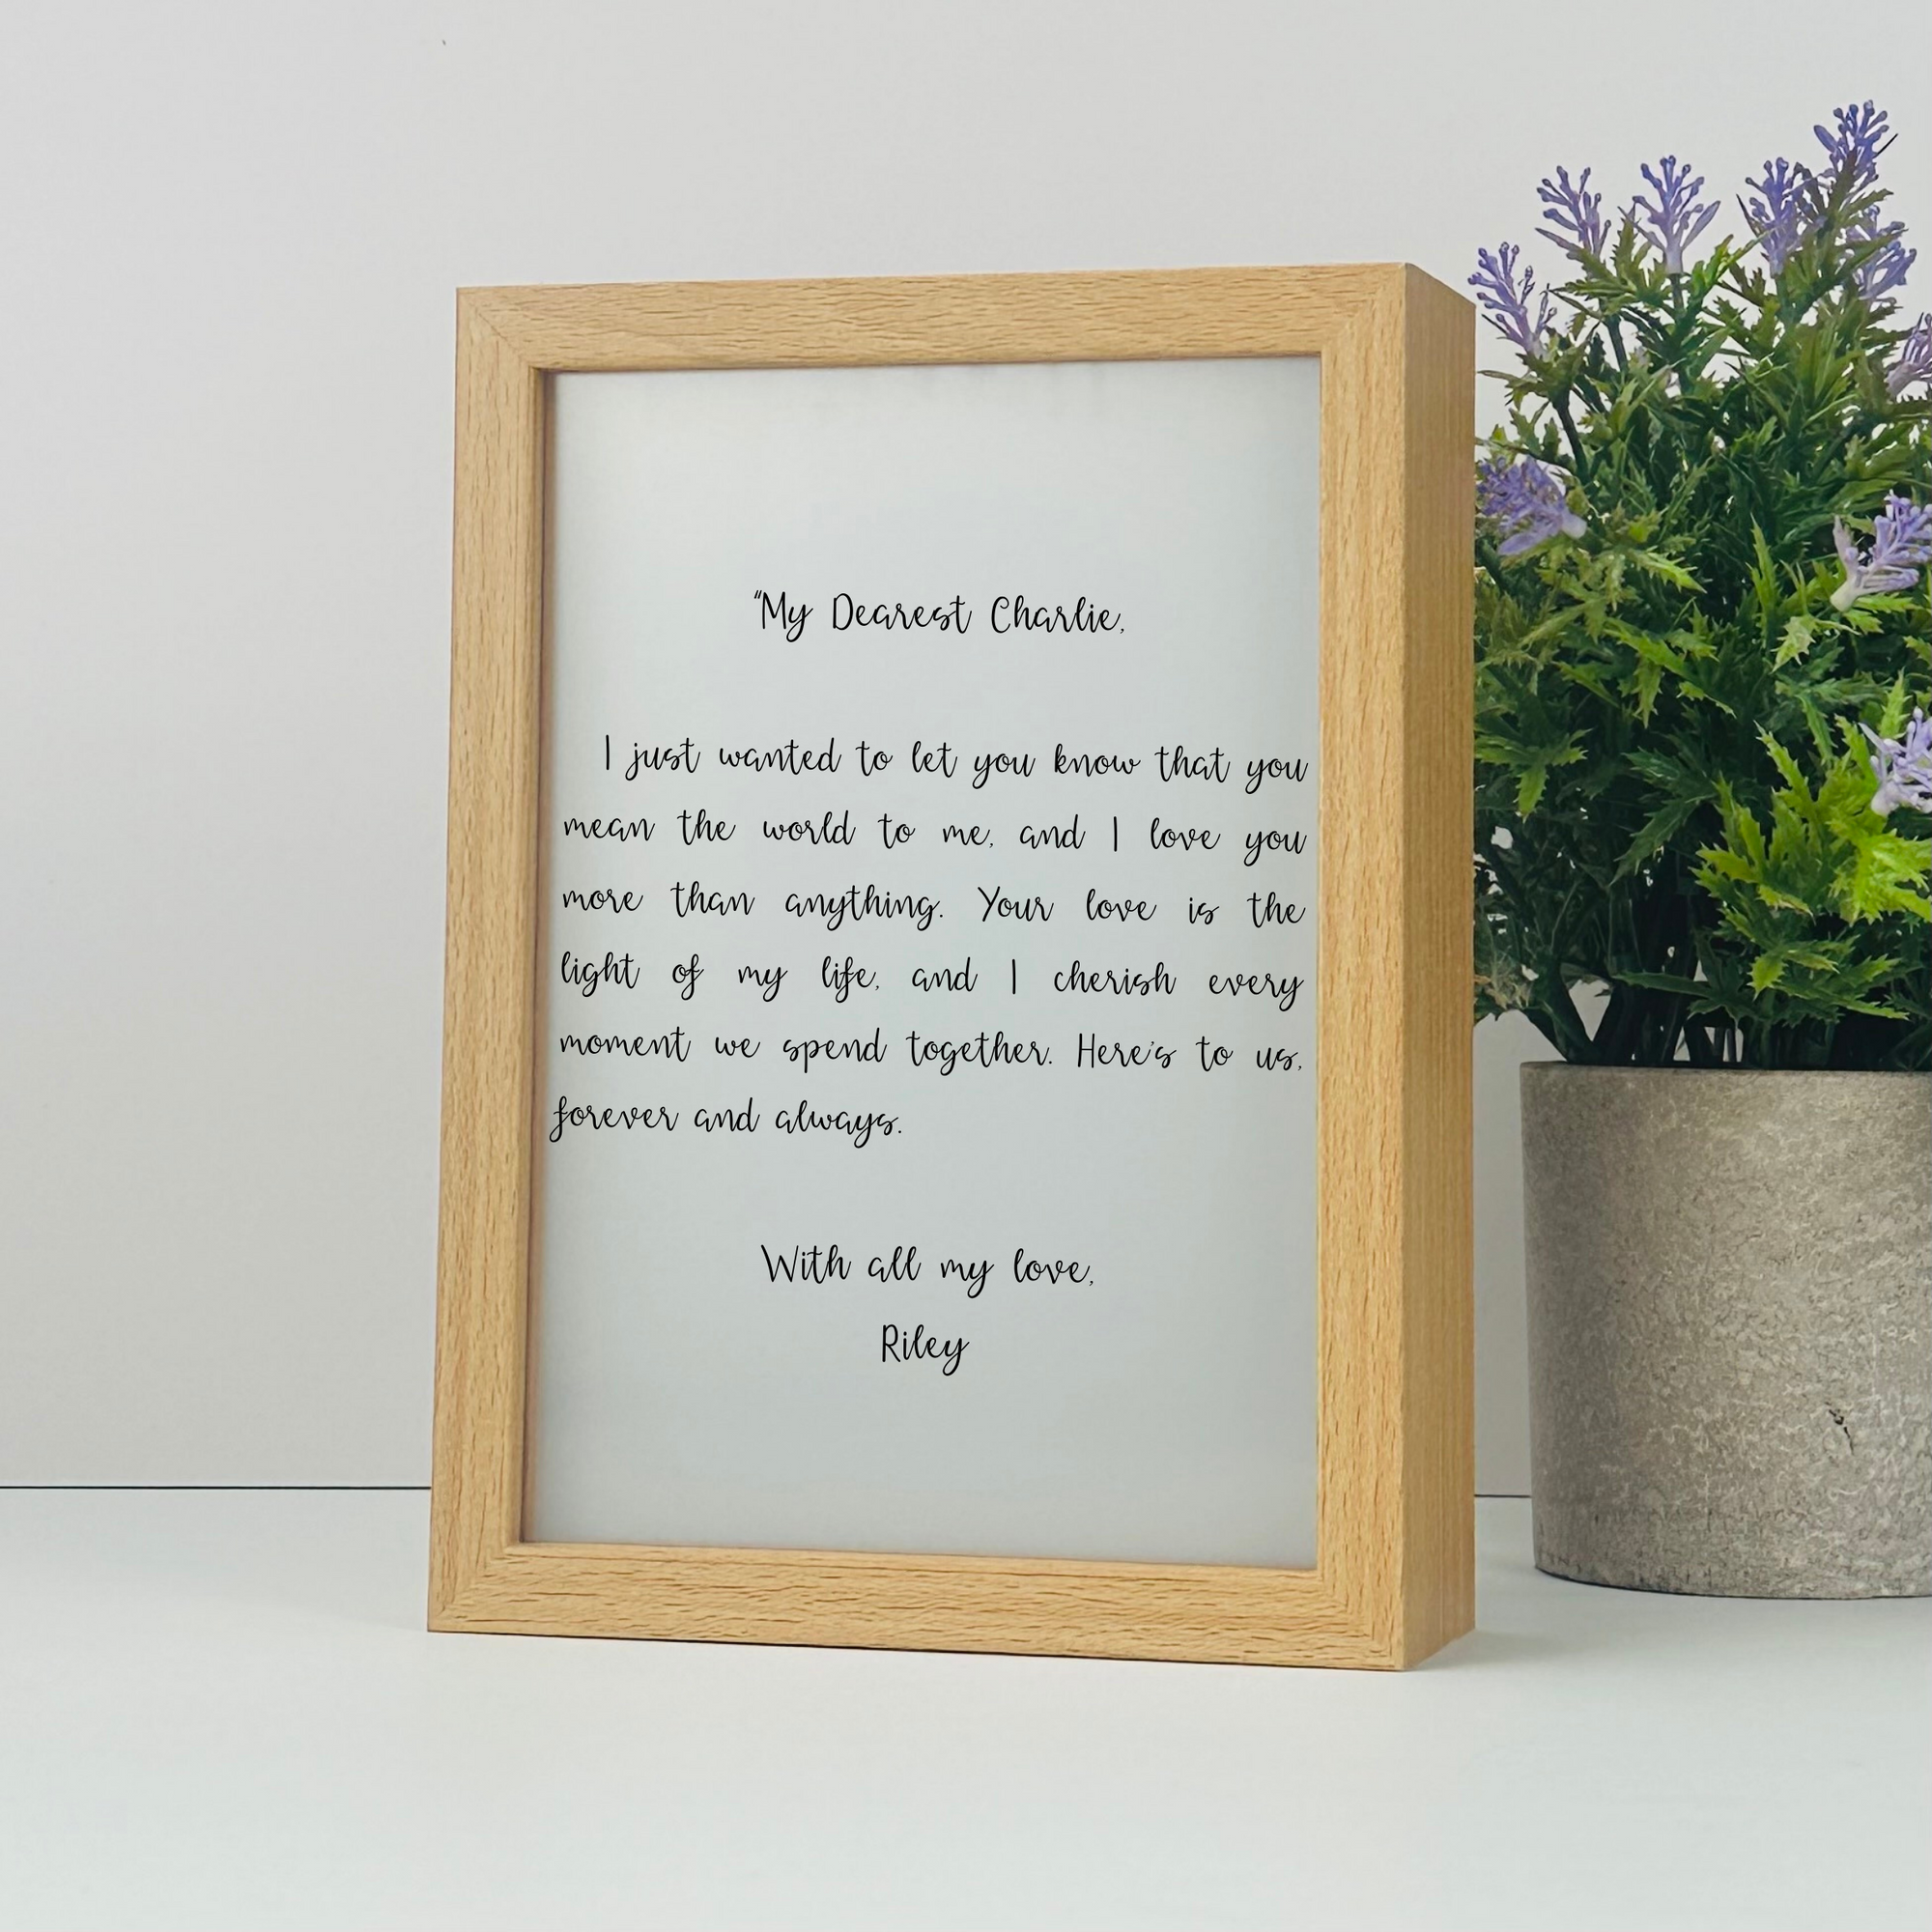 “My Dearest Charlie,
I just wanted to let you know that you
mean the world to me, and I love you
more than anything. Your love is the
light of my life, and I cherish every
moment we spend together. Here's to us,
forever and always.
With all my love,
Riley